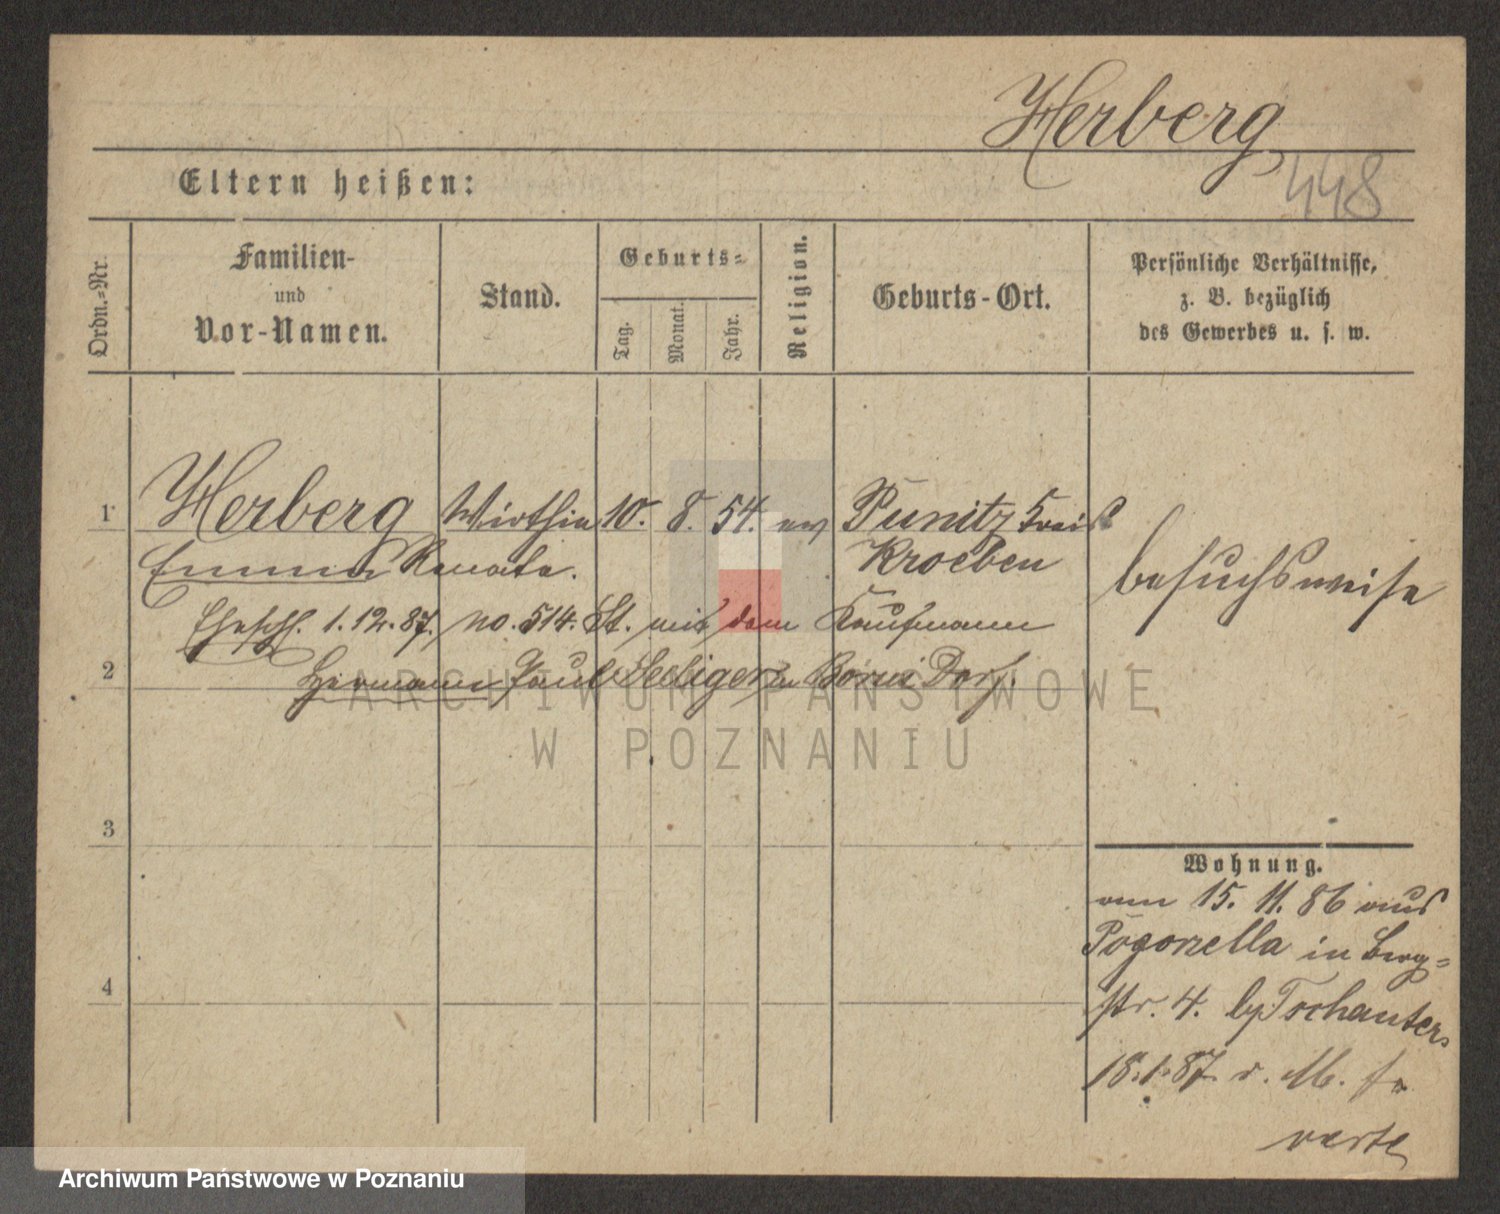 Herberg
448
Eltern heißen:
Ordn.-Nr.
Familien-
und
Vor-Namen.
Stand.
Geburts-
Tag.
Monat.
Jahr.
Religion.
Geburts-Ort.
Persönliche Verhältnisse,
z. B. bezüglich
des Gewerbes u. s. w.
1 Herberg Wirthin 10. 8. 54. ev Punitz Kreis
Emma Renata. Kroeben
besuchsweise
Eheschl. 1.12.87. no. 514. St. mit dem Kaufmann
2 Hermann Paul Seeliger zu Borui Dorf.
ARCHIWUM PAŃSTWOWE
W POZNANIU
3
Wohnung.
am 15. 11. 86 aus
Pogorzella in Berg=
4
str. 4. by Tschauter.
18.1.87. v. M. f.
verte
Archiwum Państwowe w Poznaniu